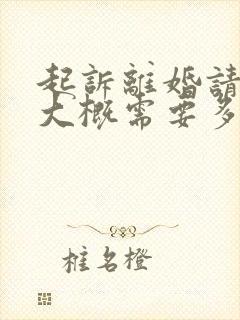 起訴離婚請
大概需要多
椎名橙